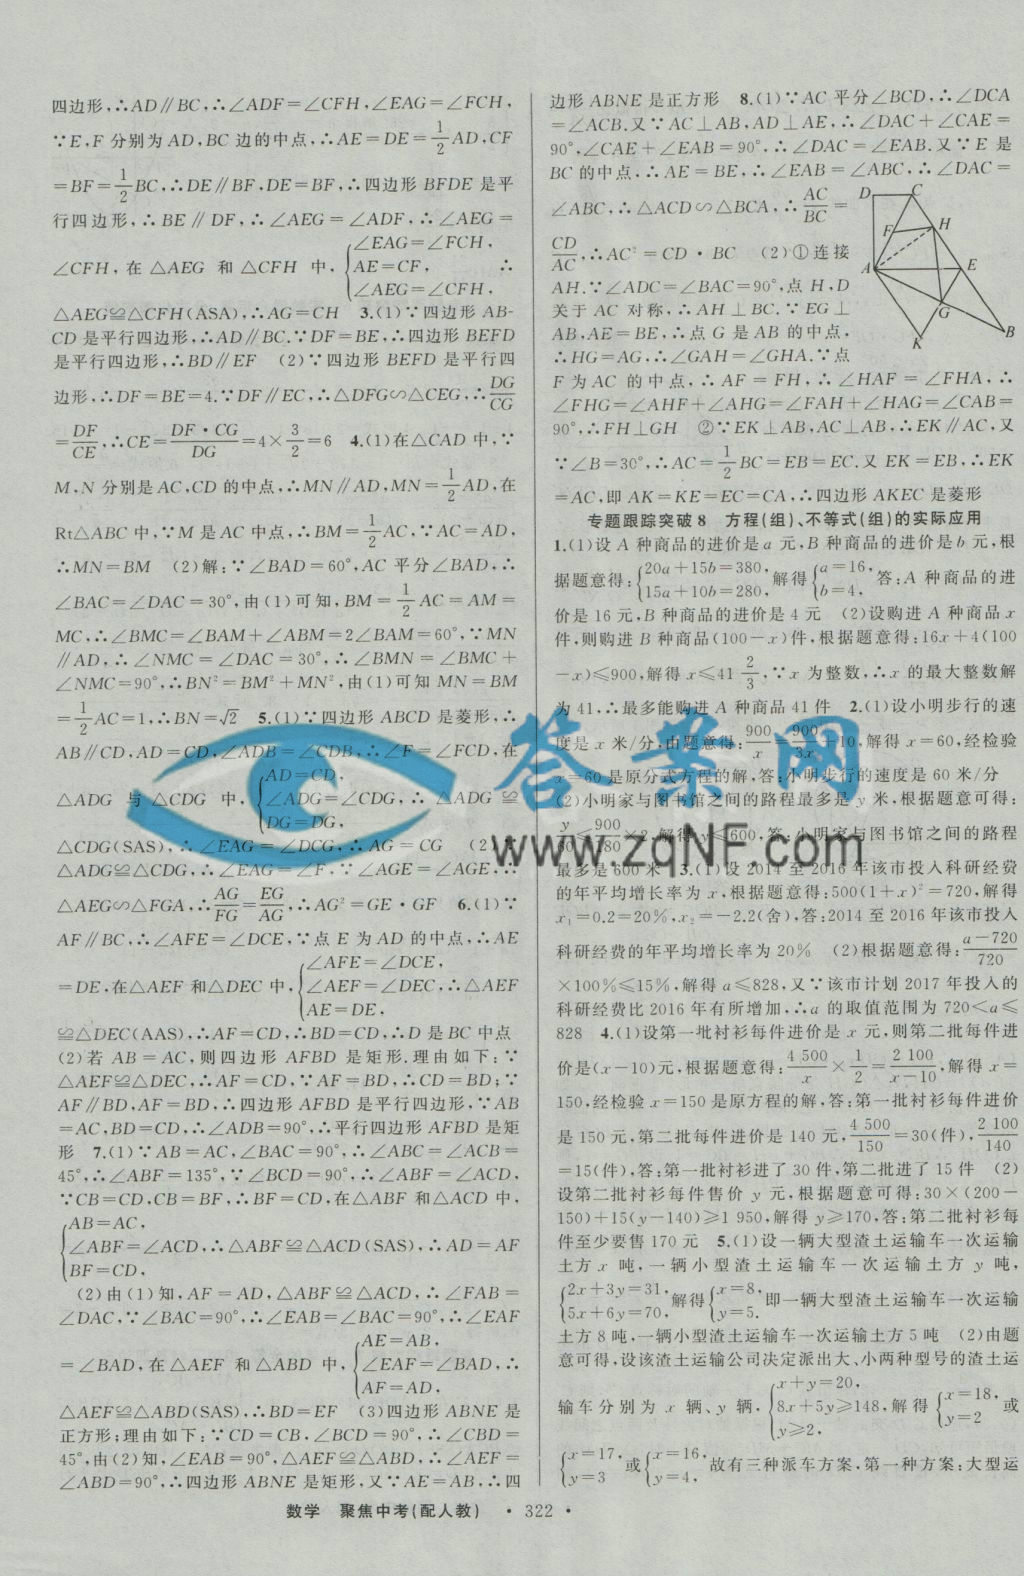 四边形,∴AD∥BC,∴∠ADF=∠CFH,∠EAG=∠FCH,
∵E,F分别为AD,BC边的中点,∴AE=DE=1/2AD,CF
=BF=1/2BC,∴DE∥BF,DE=BF,∴四边形BFDE是平
行四边形,∴BE∥DF,∴∠AEG=∠ADF,∴∠AEG=
∠CFH,在△AEG和△CFH中,{∠EAG=∠FCH, AE=CF, ∠AEG=∠CFH, ∴
△AEG≌△CFH(ASA),∴AG=CH 3.(1)∵四边形AB-
CD是平行四边形,∴AD∥BC.∵DF=BE,∴四边形BEFD
是平行四边形,∴BD∥EF (2)∵四边形BEFD是平行四
边形,∴DF=BE=4.∵DF∥EC,∴△DFG∽△CEG,∴DG/CG
=DF/CE,∴CE=DF·CG/DG=4×3/2=6 4.(1)在△CAD中,∵
M,N分别是AC,CD的中点,∴MN∥AD,MN=1/2AD,在
Rt△ABC中,∵M是AC中点,∴BM=1/2AC,∵AC=AD,
∴MN=BM (2)解:∵∠BAD=60°,AC平分∠BAD,∴
∠BAC=∠DAC=30°,由(1)可知,BM=1/2AC=AM=
MC,∴∠BMC=∠BAM+∠ABM=2∠BAM=60°,∵MN
∥AD,∴∠NMC=∠DAC=30°,∴∠BMN=∠BMC+
∠NMC=90°,∴BN²=BM²+MN²,由(1)可知MN=BM
=1/2AC=1,∴BN=√2 5.(1)∵四边形ABCD是菱形,∴
AB∥CD,AD=CD,∠ADB=∠CDB,∴∠F=∠FCD,在
△ADG与△CDG中,{AD=CD, ∠ADG=∠CDG, DG=DG, ∴△ADG≌
△CDG(SAS),∴∠EAG=∠DCG,∴AG=CG (2)∵
△ADG≌△CDG,∴∠EAG=∠F.∵∠AGE=∠AGE,∴
△AEG∽△FGA,∴AG/FG=EG/AG,∴AG²=GE·GF 6.(1)∵
AF∥BC,∴∠AFE=∠DCE,∵点E为AD的中点,∴AE
=DE,在△AEF和△DEC中,{∠AFE=∠DCE, ∠AEF=∠DEC, AE=DE, ∴△AEF
≌△DEC(AAS),∴AF=CD,∴BD=CD,∴D是BC中点
(2)若AB=AC,则四边形AFBD是矩形.理由如下:∵
△AEF≌△DEC,∴AF=CD,∵AF=BD,∴CD=BD;∵
AF∥BD,AF=BD,∴四边形AFBD是平行四边形,∵AB
=AC,BD=CD,∴∠ADB=90°,∴平行四边形AFBD是矩
形 7.(1)∵AB=AC,∠BAC=90°,∴∠ABC=∠ACB=
45°,∴∠ABF=135°,∵∠BCD=90°,∴∠ABF=∠ACD,
∵CB=CD,CB=BF,∴BF=CD,在△ABF和△ACD中,
{AB=AC, ∠ABF=∠ACD, BF=CD, ∴△ABF≌△ACD(SAS),∴AD=AF
(2)由(1)知,AF=AD,△ABF≌△ACD,∴∠FAB=
∠DAC,∵∠BAC=90°,∴∠EAB=∠BAC=90°,∴∠EAF
=∠BAD,在△AEF和△ABD中,{AE=AB, ∠EAF=∠BAD, AF=AD, ∴
△AEF≌△ABD(SAS),∴BD=EF (3)四边形ABNE是
正方形;理由如下:∵CD=CB,∠BCD=90°,∴∠CBD=
45°,由(2)知,∠EAB=90°,△AEF≌△ABD,∴∠AEF=
∠ABD=90°,∴四边形ABNE是矩形,又∵AE=AB,∴四
边形ABNE是正方形 8.(1)∵AC平分∠BCD,∴∠DCA
=∠ACB.又∵AC⊥AB,AD⊥AE,∴∠DAC+∠CAE=
90°,∠CAE+∠EAB=90°,∴∠DAC=∠EAB.又∵E是
BC的中点,∴AE=BE,∴∠EAB=∠ABC,∴∠DAC=
∠ABC,∴△ACD∽△BCA,∴AC/BC=
CD/AC,∴AC²=CD·BC (2)①连接
AH.∵∠ADC=∠BAC=90°,点H,D
关于AC对称,∴AH⊥BC.∵EG⊥
AB,AE=BE,∴点G是AB的中点,
∴HG=AG,∴∠GAH=∠GHA.∵点
F为AC的中点,∴AF=FH,∴∠HAF=∠FHA,∴
∠FHG=∠AHF+∠AHG=∠FAH+∠HAG=∠CAB=
90°,∴FH⊥GH ②∵EK⊥AB,AC⊥AB,∴EK∥AC,又
∵∠B=30°,∴AC=1/2BC=EB=EC.又EK=EB,∴EK
=AC,即AK=KE=EC=CA,∴四边形AKEC是菱形
D C H F A E G K B
专题跟踪突破8 方程(组)、不等式(组)的实际应用
1.(1)设A种商品的进价是a元,B种商品的进价是b元,根
据题意得:{20a+15b=380, 15a+10b=280, 解得{a=16, b=4, 答:A种商品的进
价是16元,B种商品的进价是4元 (2)设购进A种商品x
件,则购进B种商品(100-x)件,根据题意得:16x+4(100
-x)≤900,解得x≤41 2/3,∵x为整数,∴x的最大整数解
为41,∴最多能购进A种商品41件 2.(1)设小明步行的速
度是x米/分,由题意得:900/x=900/3x+10,解得x=60,经检验
x=60是原分式方程的解,答:小明步行的速度是60米/分
(2)小明家与图书馆之间的路程最多是y米,根据题意可得:
y/60≤900/180×2,解得y≤600,答:小明家与图书馆之间的路程
最多是600米 3.(1)设2014至2016年该市投入科研经费
的年平均增长率为x,根据题意得:500(1+x)²=720,解得
x₁=0.2=20%,x₂=-2.2(舍),答:2014至2016年该市投入
科研经费的年平均增长率为20% (2)根据题意得:a-720/720
×100%≤15%,解得a≤828,又∵该市计划2017年投入的
科研经费比2016年有所增加,∴a的取值范围为720<a≤
828 4.(1)设第一批衬衫每件进价是x元,则第二批每件进
价是(x-10)元,根据题意得:4 500/x×1/2=2 100/x-10,解得x=
150,经检验x=150是原方程的解,答:第一批衬衫每件进价
是150元,第二批每件进价是140元,4 500/150=30(件),2 100/140
=15(件),答:第一批衬衫进了30件,第二批进了15件 (2)
设第二批衬衫每件售价y元,根据题意可得:30×(200-
150)+15(y-140)≥1 950,解得y≥170,答:第二批衬衫每
件至少要售170元 5.(1)设一辆大型渣土运输车一次运输
土方x吨,一辆小型渣土运输车一次运输土方y吨,
{2x+3y=31, 5x+6y=70, 解得{x=8, y=5. 即一辆大型渣土运输车一次运输
土方8吨,一辆小型渣土运输车一次运输土方5吨 (2)由题
意可得,设该渣土运输公司决定派出大、小两种型号的渣土运
输车分别为x辆、y辆,{x+y=20, 8x+5y≥148, y≥2, 解得{x=18, y=2 或
{x=17, y=3 或{x=16, y=4, 故有三种派车方案,第一种方案:大型运
数学 聚焦中考(配人教) ·322·
答案网
www.zqNF.com